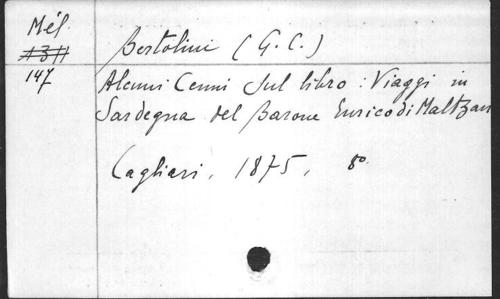 Mél.
1311
147
Bertolini (G. C.)
Alcuni Cenni sul libro : Viaggi in
Sardegna del Barone Enrico di Maltzan
Cagliari, 1875, 8º.